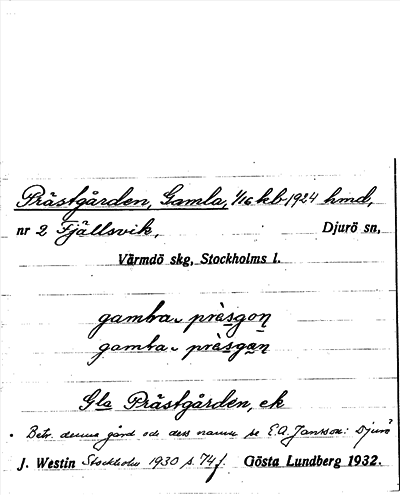 Prästgården, Gamla, 1/16 kb 1924 hmd,
nr 2 Fjällsvik, Djurö sn,
Värmdö skg, Stockholms l.
gamba prȧsgon̥
gamba prȧsgan̥
Gla Prästgården, ek
Betr. denna gård och dess namn se E.A. Jansson: Djurö
J. Westin Stockholm 1930 s. 74 f. Gösta Lundberg 1932.